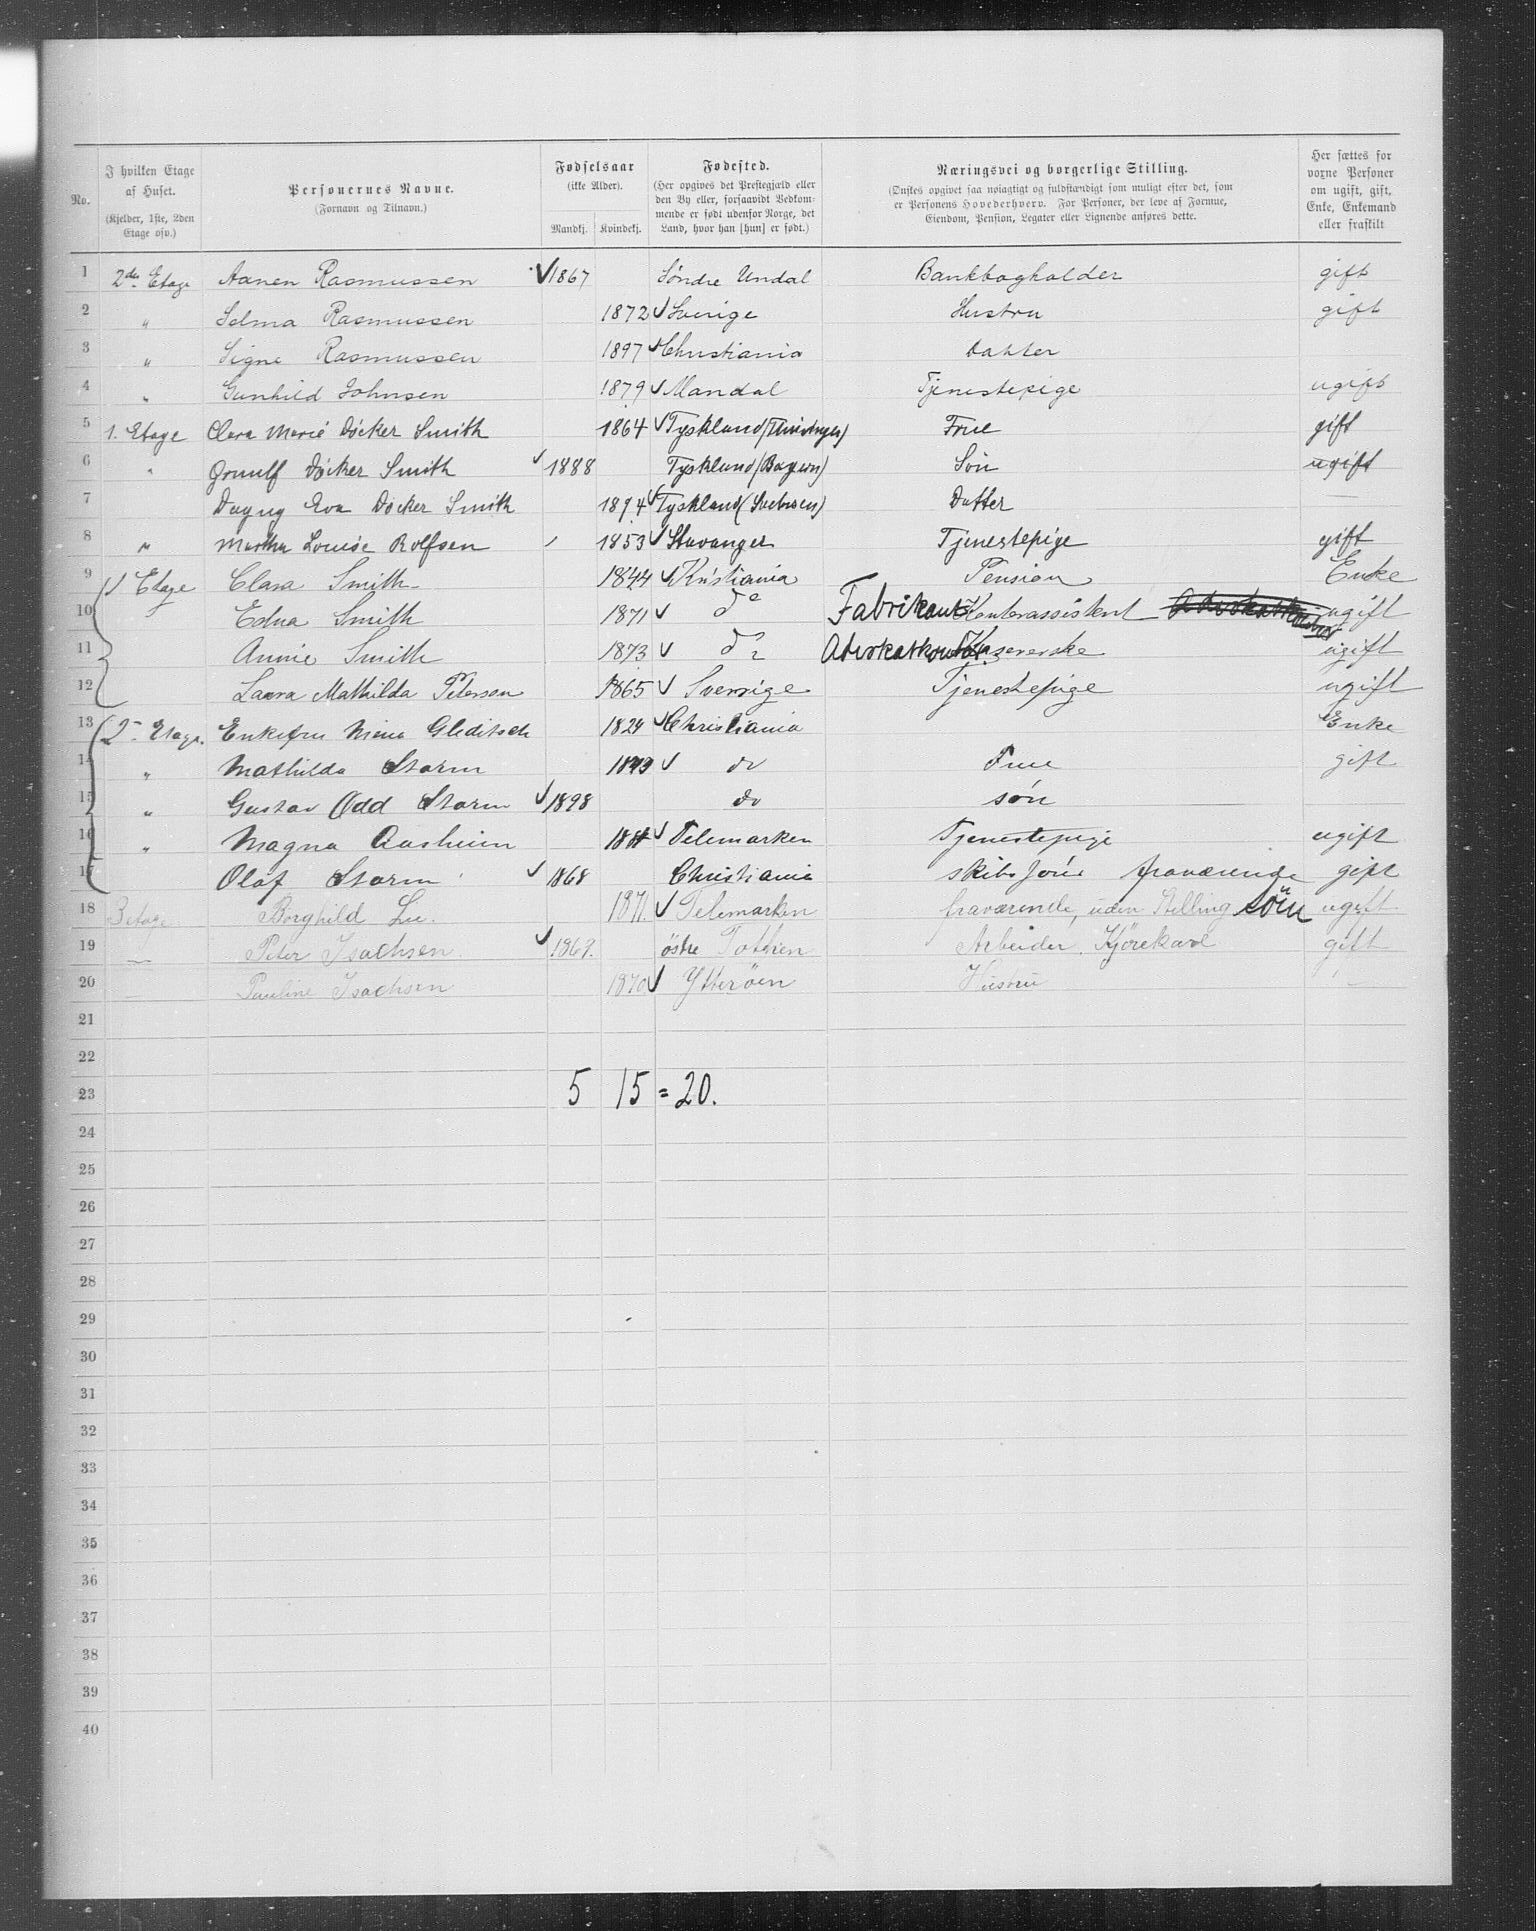 No.
I hvilken Etage af Huset. (Kjelder, 1ste, 2den Etage osv.)
Personernes Navne. (Fornavn og Tilnavn.)
Fødselsaar (ikke Alder). Mandkj. Kvindekj.
Fødested. (Her opgives det Prestegjæld eller den By eller, forsaavidt Vedkommende er født udenfor Norge, det Land, hvor han [hun] er født.)
Næringsvei og borgerlige Stilling. (Ønskes opgivet saa nøiagtigt og fuldstændigt som muligt efter det, som er Personens Hovederhverv. For Personer, der leve af Formue, Eiendom, Pension, Legater eller Lignende anføres dette.
Her sættes for voxne Personer om ugift, gift, Enke, Enkemand eller fraskilt
1 2den Etage Aanen Rasmussen 1867 Søndre Undal Bankbogholder gift
2 " Selma Rasmussen 1872 Sverige Hustru gift
3 " Signe Rasmussen 1897 Christiania Datter
4 " Gunhild Johnsen 1879 Mandal Tjenestepige ugift
5 1. Etage Clara Marie Döcker Smith 1864 Tyskland (Thüringen) Frue gift
6 " Döcker Smith 1888 Tyskland (Bayern) Sön ugift
7 Dagny Eva Döcker Smith 1894 Tyskland (Sachsen) Datter —
8 " Martha Louise Rolfsen 1853 Stavanger Tjenestepige gift
9 1 Etage Clara Smith 1844 Kristiania Pension Enke
10 Edna Smith 1871 do Fabrikant Kontorassistent ugift
11 Annie Smith 1873 do Advokatkontor Kassererske ugift
12 Laura Mathilda Peterson 1865 Sverige Tjenestepige ugift
13 2 Etage. Enkefru Nina Gleditsch 1824 Christiania Enke
14 " Mathilda Storm 1873 do Frue gift
15 " Gustav Odd Storm 1898 do søn
16 " Magna Aasheim Telemarken Tjenestepige ugift
17 Olaf Storm 1868 Christiania skibsfører fraværende gift
18 3 etage Borghild Lie. 1871. Telemarken fraværende, uden Stilling ugift
19 — Peter Isachsen. 1867. östre Tothen Arbeider, Kjörekarl gift
20 — Pauline Isachsen 1870 Ytteröen Hustru —
21
22
23 5 15 = 20.
24
25
26
27
28
29
30
31
32
33
34
35
36
37
38
39
40